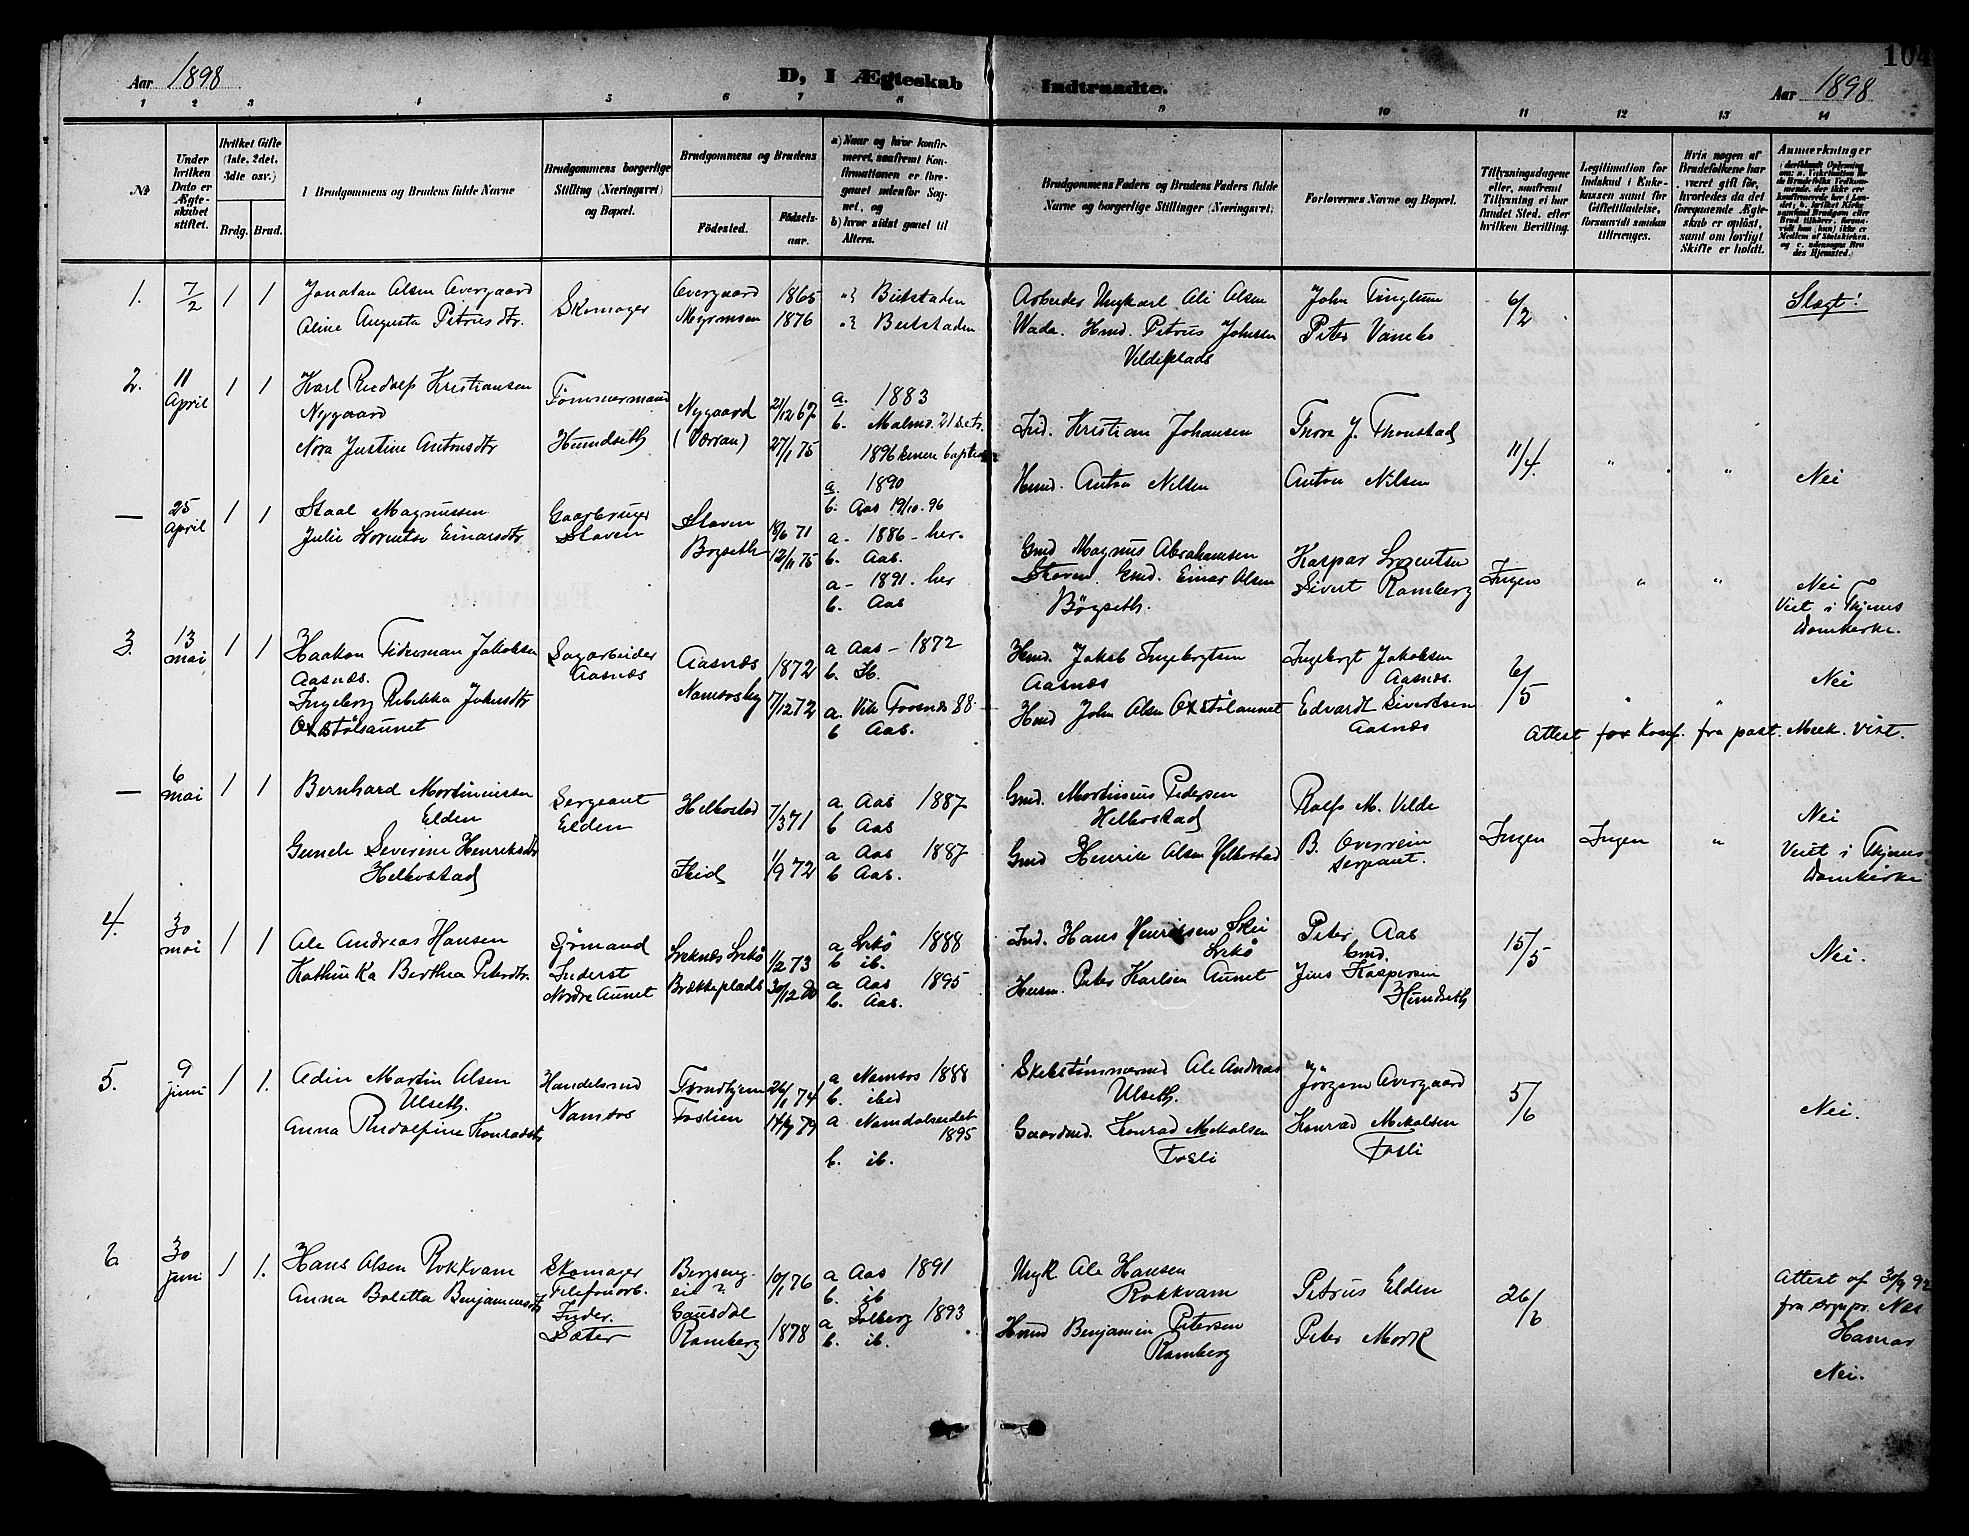 104
Aar 1898
D, I Ægteskab Indtraadte.
Aar 1898
1 2 3 4 5 6 7 8 9 10 11 12 13 14
№
Under hvilken Dato er Ægteskabet stiftet.
Hvilket Gifte (1ste, 2det, 3die osv.)
Brdg. Brud.
Brudgommens og Brudens fulde Navne
Brudgommens borgerlige Stilling (Næringsvei) og Bopæl.
Brudgommens og Brudens
Födested.
Födselsaar.
a) Naar og hvor konfirmeret, saafremt Konfirmationen er foregaaet udenfor Sognet, og
b) hvor sidst gaaet til Alters.
Brudgommens Faders og Brudens Faders fulde Navne og borgerlige Stillinger (Næringsvei)
Forlovernes Navne og Bopæl.
Tillysningsdagene eller, saafremt Tillysning ei har fundet Sted, efter hvilken Bevilling.
Legitimation for Indskud i Enkekassen samt for Giftetilladelse, forsaavidt saadan tiltrænges.
Hvis nogen af Brudefolkene har været gift för, hvorledes da det foregaaende Ægteskab er oplöst, samt om lovligt Skifte er holdt.
Anmærkninger
1. 7/2 1 1
Jonatan Olsen Overgaard
Aline Augusta Petrusdtr.
Skomager
Overgaard 1865
Myrmoen 1876
Arbeider Ungkarl Ole Olsen
Hmd. Petrus Johnsen
John Tinglum
6/2
Slægt!
2. 11 April 1 1
Karl Rudolf Kristiansen
Nygaard
Nora Justine Antonsdtr
Tømmermand
Hundseth
Nygaard 21/12 67
(Værran) 27/1 75
a. 1883
b. Malmø.
1896
a. 1890
b. Aas 19/10. 96
Ind. Kristian Johansen
Hmd. Anton Nilsen
Thore J. Thonstad
Anton Nilsen
11/4.
" " Nei
— 25 April 1 1
Staal Magnussen
Julie Lorentse Einarsdtr
Gaarbruger
Staven
Staven 18/6 71
Bøgseth 12/11 75
a - 1886 - her.
b. Aas.
a - 1891. her
b. Aas
Gmd Magnus Abrahamsen
Staven. Gmd. Einar Olsen
Bögseth.
Kaspar Lorentsen
Sivert Ramberg
Ingen
" " Nei
Viet i Thjems
Domkirke.
3. 13 mai 1 1
Haakon Tiderman Jakobsen
Aasnæs.
Ingeborg Rebekka Johnsdtr
Oxstølaunet
Sagarbeider
Aasnæs
Aasnæs 1872
Namsoshy 17/12 72
a Aas - 1872
b. H.
a. Vik Fosnæs 88
b Aas.
Hmd. Jakob Ingebrigtsen
Aasnæs
Hmd John Olsen Oxstølaunet
Ingebrigt Jakobsen
Aasnæs.
Edvardt Sivertsen
Aasnæs
6/5
" " Nei
Attest for Konf. fra past. Meek. vist.
— 6 mai 1 1
Bernhard Martiniussen
Elden
Gunele Severine Henriksdtr
Helbostad
Sergeant
Elden
Helbostad 7/3 71
1/9 72
a Aas 1887
b Aas
a Aas 1887
b Aas.
Gmd. Martinus Pedersen
Helbostad
Gmd Henrik Olsen Helbostad
Rolf M. Velde
B. Overrein
Sergeant.
Ingen Ingen " Nei
Viet i Thjems
Domkirke
4. 30 mai 1 1
Ole Andreas Hansen
Kathinka Berthea Petersdtr.
Sjømand
Inderst
Nordre Aunet
Leknæs Lekø 1/2 73
Brækkeplads 30/12 80
a Lekø 1888
b ib.
a Aas 1895
b. Aas.
Ind. Hans Henriksen Skei
Lekø
Husm. Peter Karlsen Aunet
Peter Aas
Gmd.
Jens Kaspersen
Hundseth
15/5
Nei.
5. 9 juni 1 1.
Odin Martin Olsen
Ulseth.
Anna Rudolfine Konradsdtr
Handelsmd
Namsos
Trondhjem 26/1 74
Foslien 79
a Namsos 1888
b. ibid
a Namdalseidet
1895
b. ib.
Skibstimmermd Ole Andreas
Ulseth.
Gaardmd. Konrad Mikalsen
Fosli
Jörgen Overgaard
Konrad Mikalsen
Fosli
5/6
Nei.
6 30 juni 1 1.
Hans Olsen Rokkvam
Anna Boletta Benjaminsdtr
Skomager
Telefonarb.
Inder.
Sæter
Bergseng-
eie?
Gausdal 10/1 76
Ramberg 1878
a Aas 1891
b. ib
a Solberg 1893
b. ib.
Ungk Ole Hansen
Rokkvam
Hmd Benjamin Petersen
Ramberg
Petrus Elden
Peter Mork
26/6
Attest af 30/9 92
fra sognpr. Næs
Hamar
Nei.